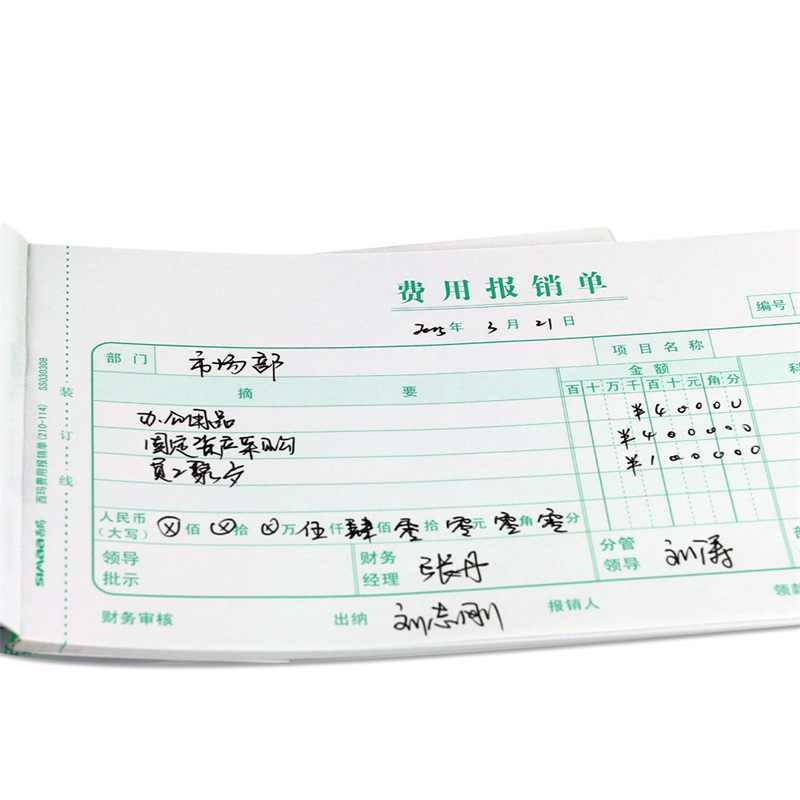 费用报销单
2025年 3月 21日
编号
部门 市场部 项目名称
摘要 金额
百十万千百十元角分
办公用品 ¥40000
固定资产采购 ¥400000
员工聚 ¥100000
人民币(大写) ⊗佰⊗拾⊗万伍仟肆佰零拾零元零角零分
领导批示 财务经理 张丹 分管领导 刘涛
财务审核 出纳 刘志刚 报销人 领款
装订线
西玛费用报销单(210-114) SS030308
SIMAA 西玛